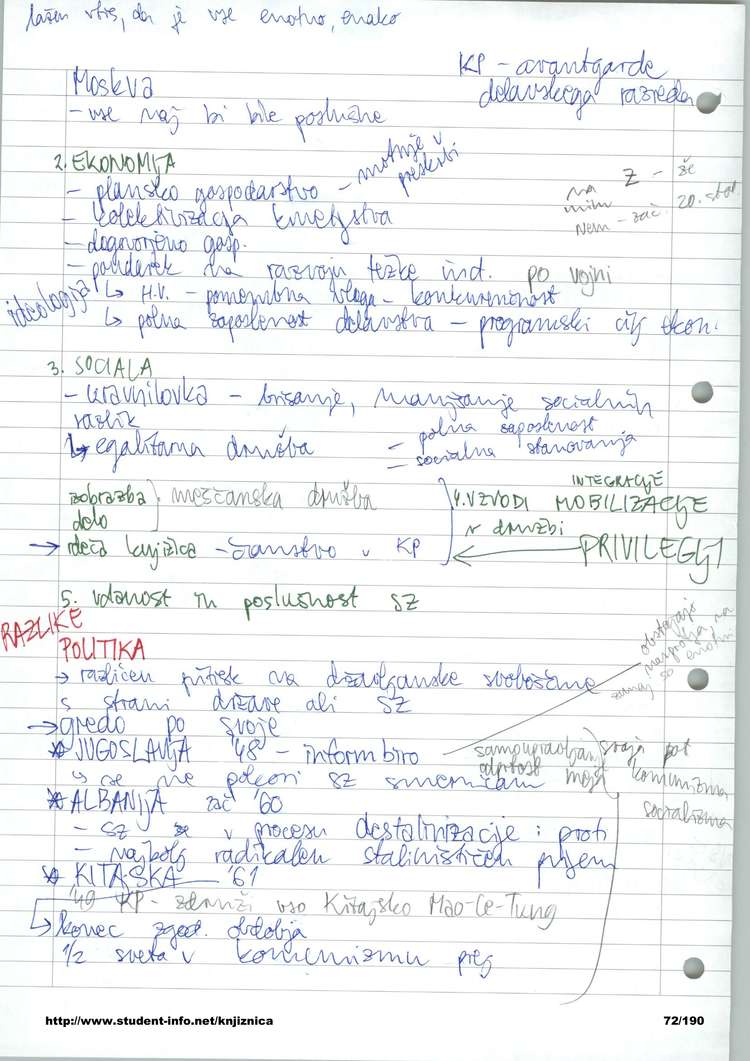 lažen vtis, da je vse enotno, enako
KP - avantgarde
delavskega razreda
Moskva
- vse naj bi bile poslušne
2. EKONOMIJA
- plansko gospodarstvo - motnje v
preskrbi
- kolektivizacija kmetijstva
- dogovorjeno gosp.
- poudarek na razvoju težke ind. po vojni
na Z - že
Nem - zač. 20. stol
ideologija
↳ H.V. - pomembna vloga - konkurenčnost
↳ polna zaposlenost delavstva - programski cilj ekon.
3. SOCIALA
- uravnilovka - brisanje, manjšanje socialnih
razlik
↳ egalitarna družba
= polna zaposlenost
= socialna stanovanja
izobrazba
delo
meščanska družba
4. VZVODI INTEGRACIJE
MOBILIZACIJE
v družbi
→ rdeča knjižica - članstvo v KP
PRIVILEGIJI
5. vdanost in poslušnost SZ
RAZLIKE
POLITIKA
obstajajo
nasprotja
→ različen pritisk na državljanske svoboščine
s strani države ali SZ
→ gredo po svoje
* JUGOSLAVIJA '48 - informbiro
samoupravljan,
odprtost meja
svoja pot
komunizma
socializma
↳ se ne pokori SZ smernicam
* ALBANIJA zač '60
- SZ v procesu destalinizacije : proti
- najbolj radikalen stalinističen prijem
* KITAJSKA '61
'49 KP - združi vso Kitajsko Mao-Ce-Tung
↳ konec zgod. obdobja
1/2 sveta v komunizmu prej
http://www.student-info.net/knjiznica
72/190